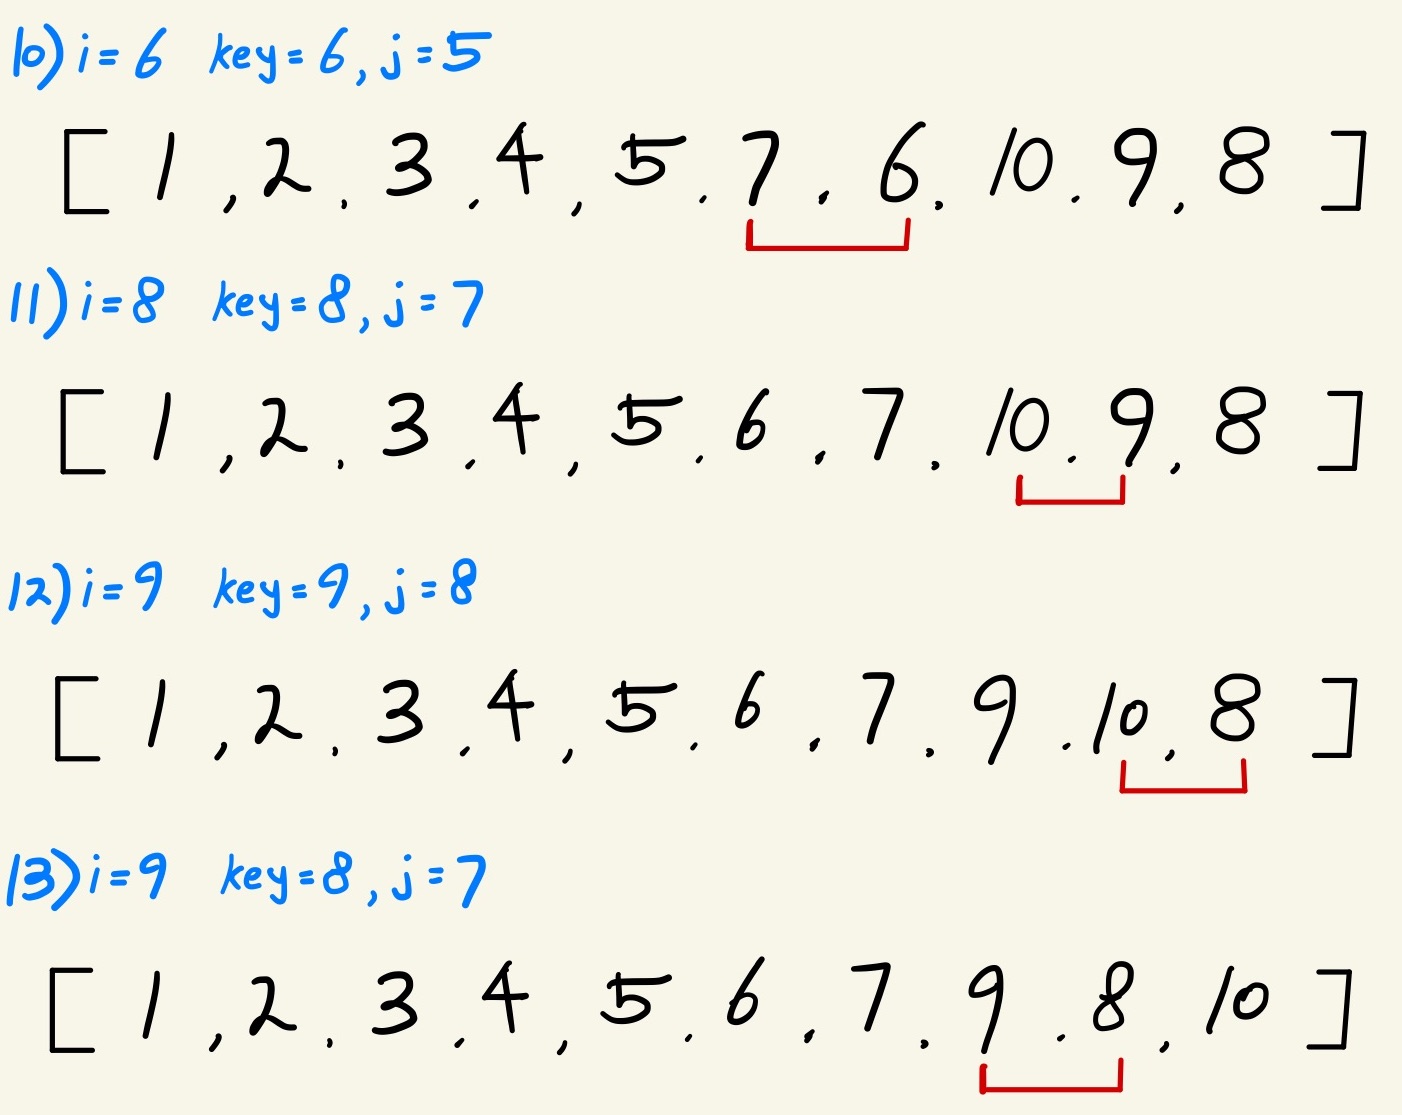 10) i=6 key=6, j=5
[ 1 , 2 . 3 . 4 , 5 . 7 . 6 . 10 . 9 , 8 ]
11) i=8 key=8, j=7
[ 1 , 2 . 3 . 4 , 5 . 6 . 7 . 10 . 9 , 8 ]
12) i=9 key=9, j=8
[ 1 , 2 . 3 . 4 , 5 . 6 . 7 . 9 . 10 , 8 ]
13) i=9 key=8, j=7
[ 1 , 2 . 3 . 4 , 5 . 6 . 7 . 9 . 8 , 10 ]